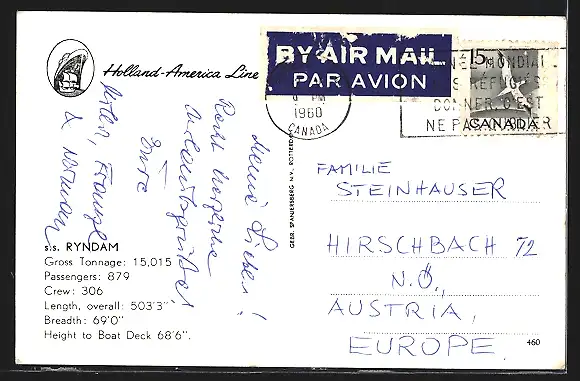 Holland-America Line
BY AIR MAIL
PAR AVION
PM
1960
CANADA
15
MONDIAL
RÉFUGIÉS
DONNER C'EST
NE PAS
CANADA
Meine Lieben!
Recht herzliche
Urlaubsgrüße!
Eure
Franzi
& Norman
GEBR. SPANJERSBERG N.V., ROTTERDAM
FAMILIE
STEINHAUSER
HIRSCHBACH 72
N.Ö.,
AUSTRIA,
EUROPE.
s.s. RYNDAM
Gross Tonnage: 15,015
Passengers: 879
Crew: 306
Length, overall: 503'3"
Breadth: 69'0"
Height to Boat Deck 68'6".
460